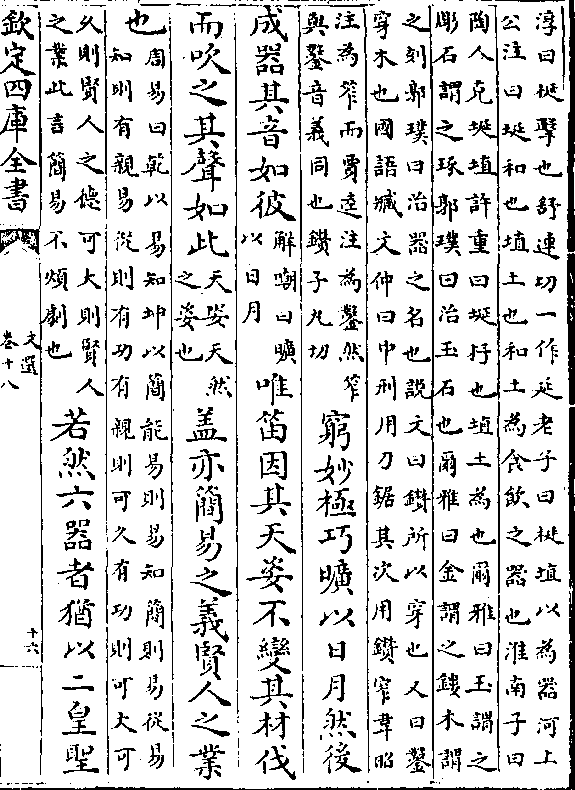 淳曰挻擊也舒連切一作延老子曰挻埴以為器河上
公注曰埏和也埴土也和土為食飲之器也淮南子曰
陶人克埏埴許重曰埏抒也埴土為也爾雅曰玉謂之
彫石謂之琢郭璞曰治玉石也爾雅曰金謂之鏤木謂
之刻郭璞曰治器之名也説文曰鑽所以穿也又曰鏨
穿木也國語臧文仲曰中刑用刀鋸其次用鑽窄韋昭
注為窄而賈逵注為鏨然窄
與鏨音義同也鑽子丸切
窮妙極巧曠以日月然後
成器其音如彼
解嘲曰曠
以日月
唯笛因其天姿不變其材伐
而吹之其聲如此
天姿天然
之姿也
盖亦簡易之義賢人之業
也
周易曰乾以易知坤以簡能易則易知簡則易從易
知則有親易從則有功有親則可久有功則可大可
久則賢人之德可大則賢人
之業此言簡易不煩劇也
若然六器者猶以二皇聖
欽定四庫全書
文選
卷十八
十六